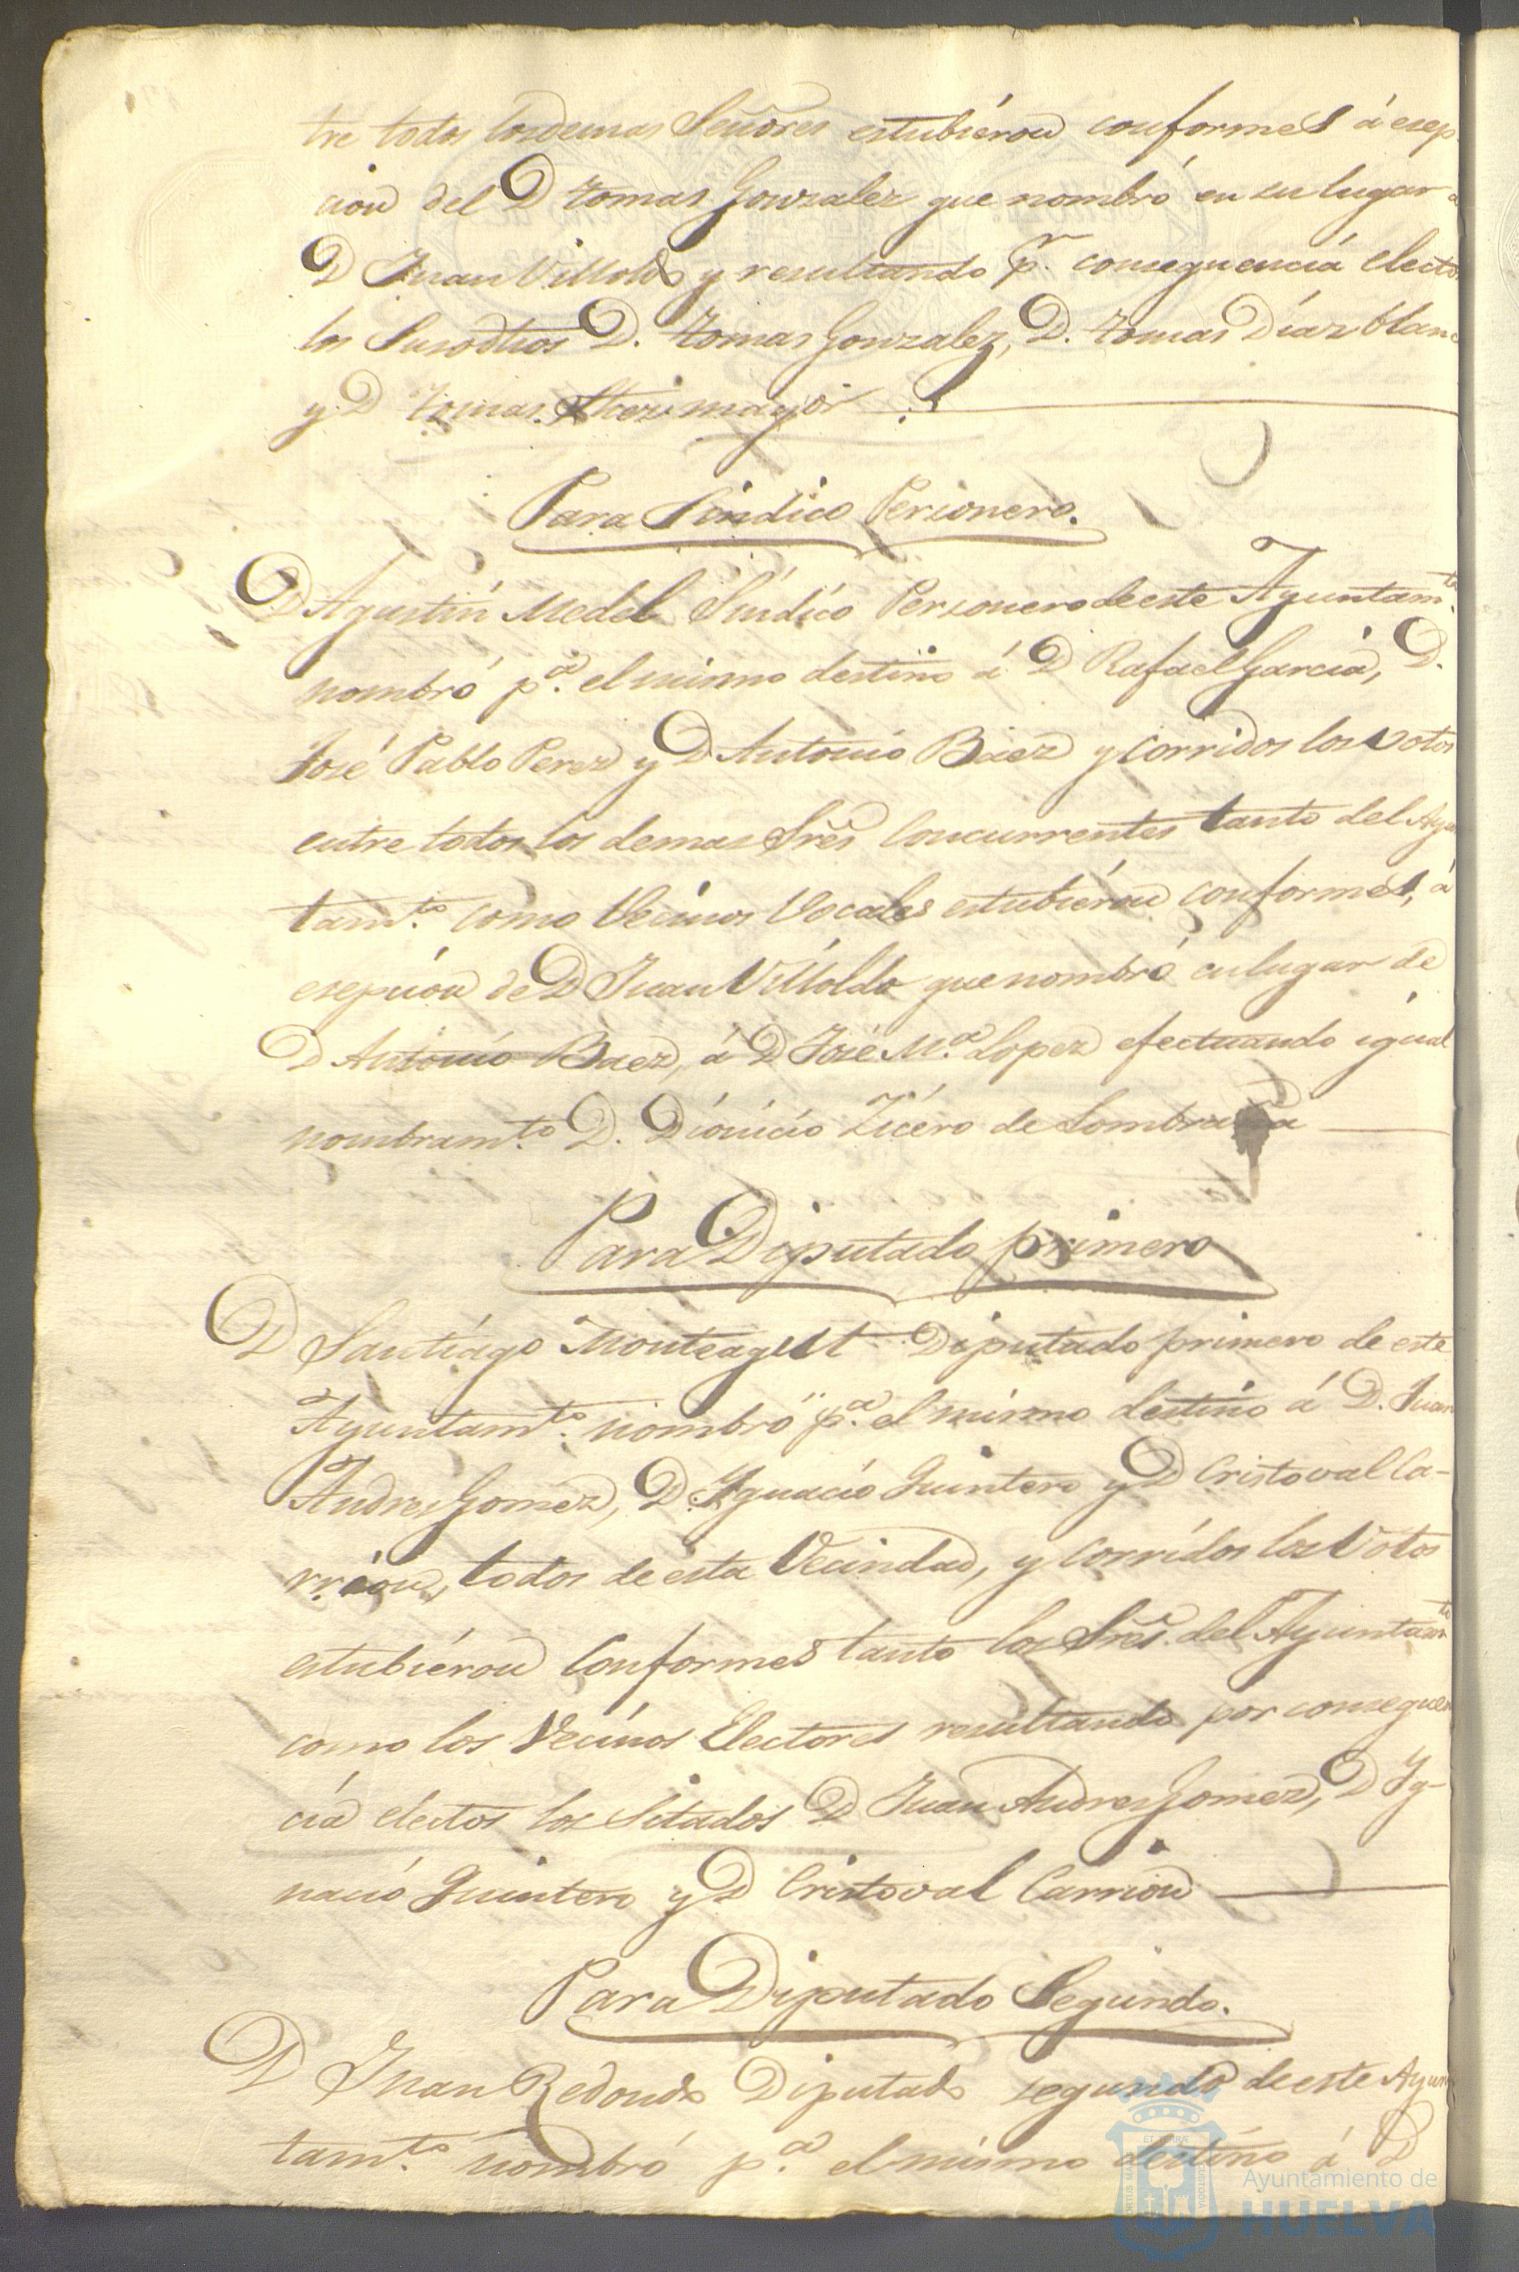 tre todos los demas Señores estubiéron conformes á esep
cion del D Tomas Gonzalez que nombró en su lugar a
D Juan Villoldo y resultando pr. consequencia electo
los Susodhos D. Tomas Gonzalez, D. Tomas Díaz blan
y D Tomas mayor
Para Sindico Personero.
D Agustin Medel Síndico Personero de este Ayuntamto.
nombró pa. el mismo destino á D Rafael Garcia, D.
José Pablo Perez y D Antonio Báez y corridos los votos
entre todos los demas Sres Concurrentes tanto del Ayu
tamto. como Vecinos Vocales estubiéron conformes, á
esepcion de D Juan Villoldo que nombró en lugar de
D Antonio Baez, á D José Ma. Lopez efectuando igual
nombramto. D. Diónicio Zicéro de Sombraña
Para Diputado primero
D Santiágo Monteagut Diputado primero de este
Ayuntamto. nombró pa. el mismo destino á D. Juan
Andres Gomez, D. Ygnacio Quintero y D Cristoval Ca-
rrion, todos de esta Vecindad, y corrídos los Votos
estubiéron Conformes tanto los Sres. del Ayuntamto
como los Vecinos Electores resultando por consequen
cía electos los Sitados D Juan Andres Gomez, D Yg-
nacio Quintero y D Cristoval Carrion
Para Diputado Segundo.
D Juan Redondo Diputado segundo de este Ayun
tamto. nombró pa. el mismo destino á D
Ayuntamiento de
HUELVA